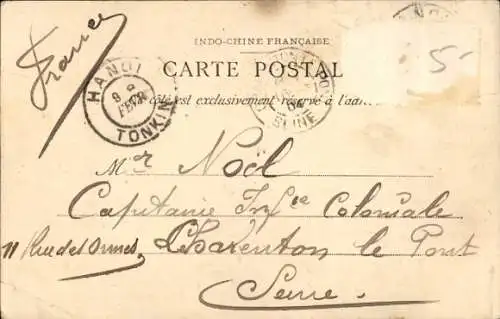 France
INDO-CHINE FRANÇAISE
CARTE POSTALE
côté est exclusivement réservé à l'adr
HANOI
TONKIN
SEINE
5
Mr Noël
Capitaine Infie Coloniale
11 Rue des Ormes Charenton le Pont
Seine